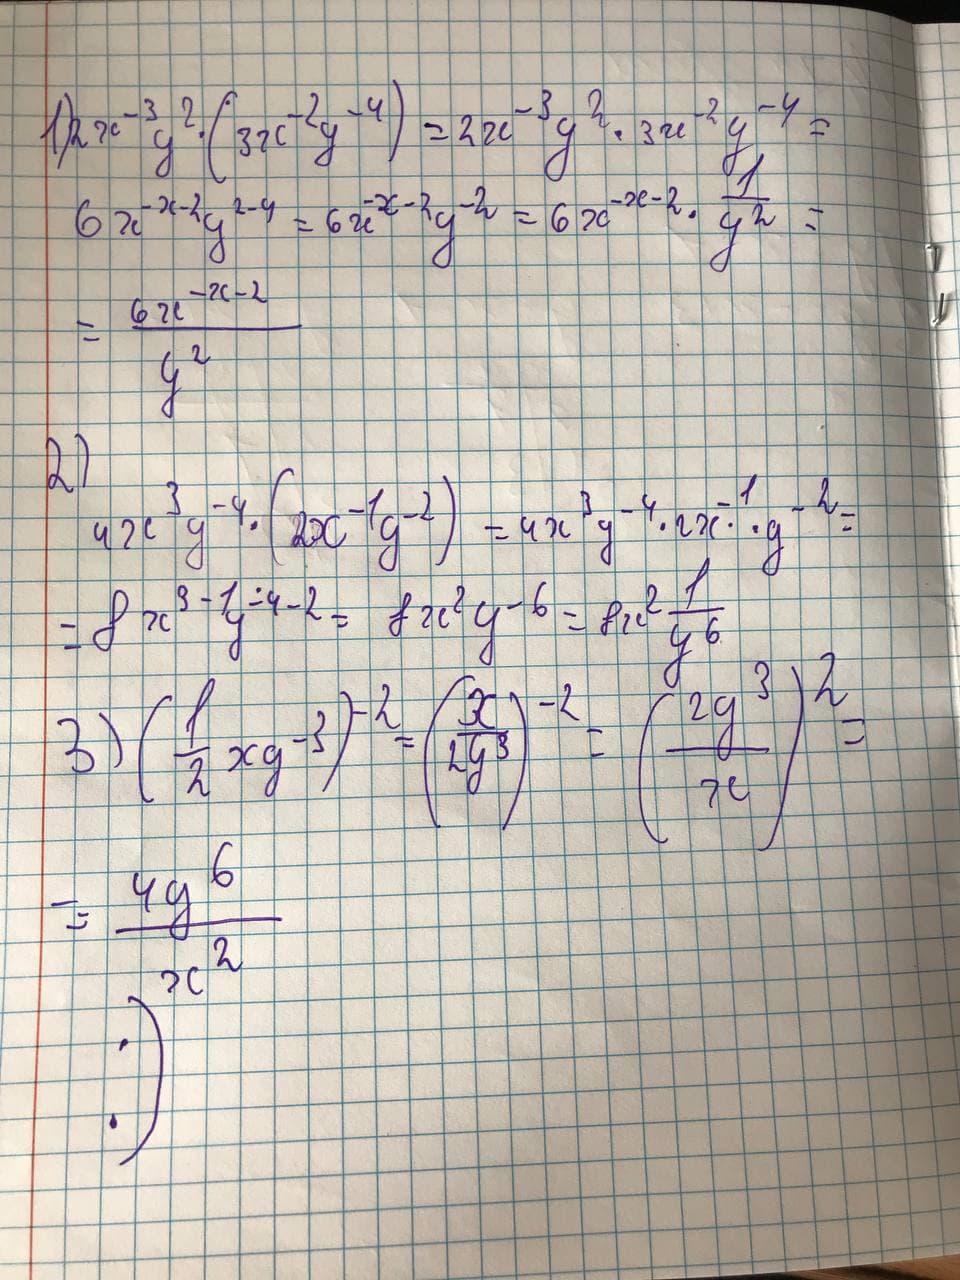 1) 2x⁻³y² · (3x⁻²y⁻⁴) = 2x⁻³y² · 3x⁻²y⁻⁴ =
6x^(-x-2)y^(2-4) = 6x^(-x-2)y⁻² = 6x^(-x-2) · 1/y² =
= 6x^(-x-2)/y²
2)
4x³y⁻⁴ · (2x⁻¹y⁻²) = 4x³y⁻⁴ · 2x⁻¹ · y⁻² =
= 8x^(3-1)y^(-4-2) = 8x²y⁻⁶ = 8x² 1/y⁶
3) (1/2 xy⁻³)⁻² = (x/2y³)⁻² = (2y³/x)² =
= 4y⁶/x²
:)